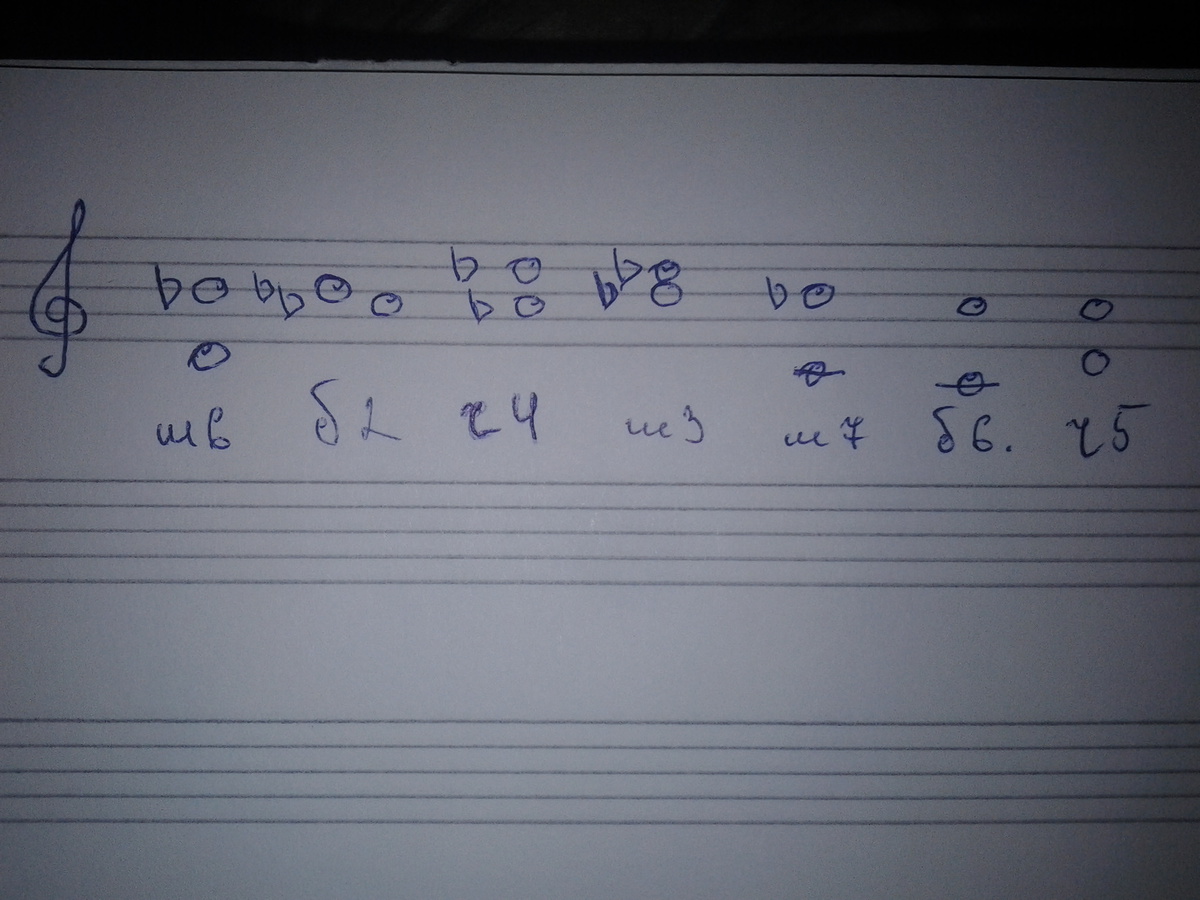 м6 б2 ч4 м3 м7 б6. ч5